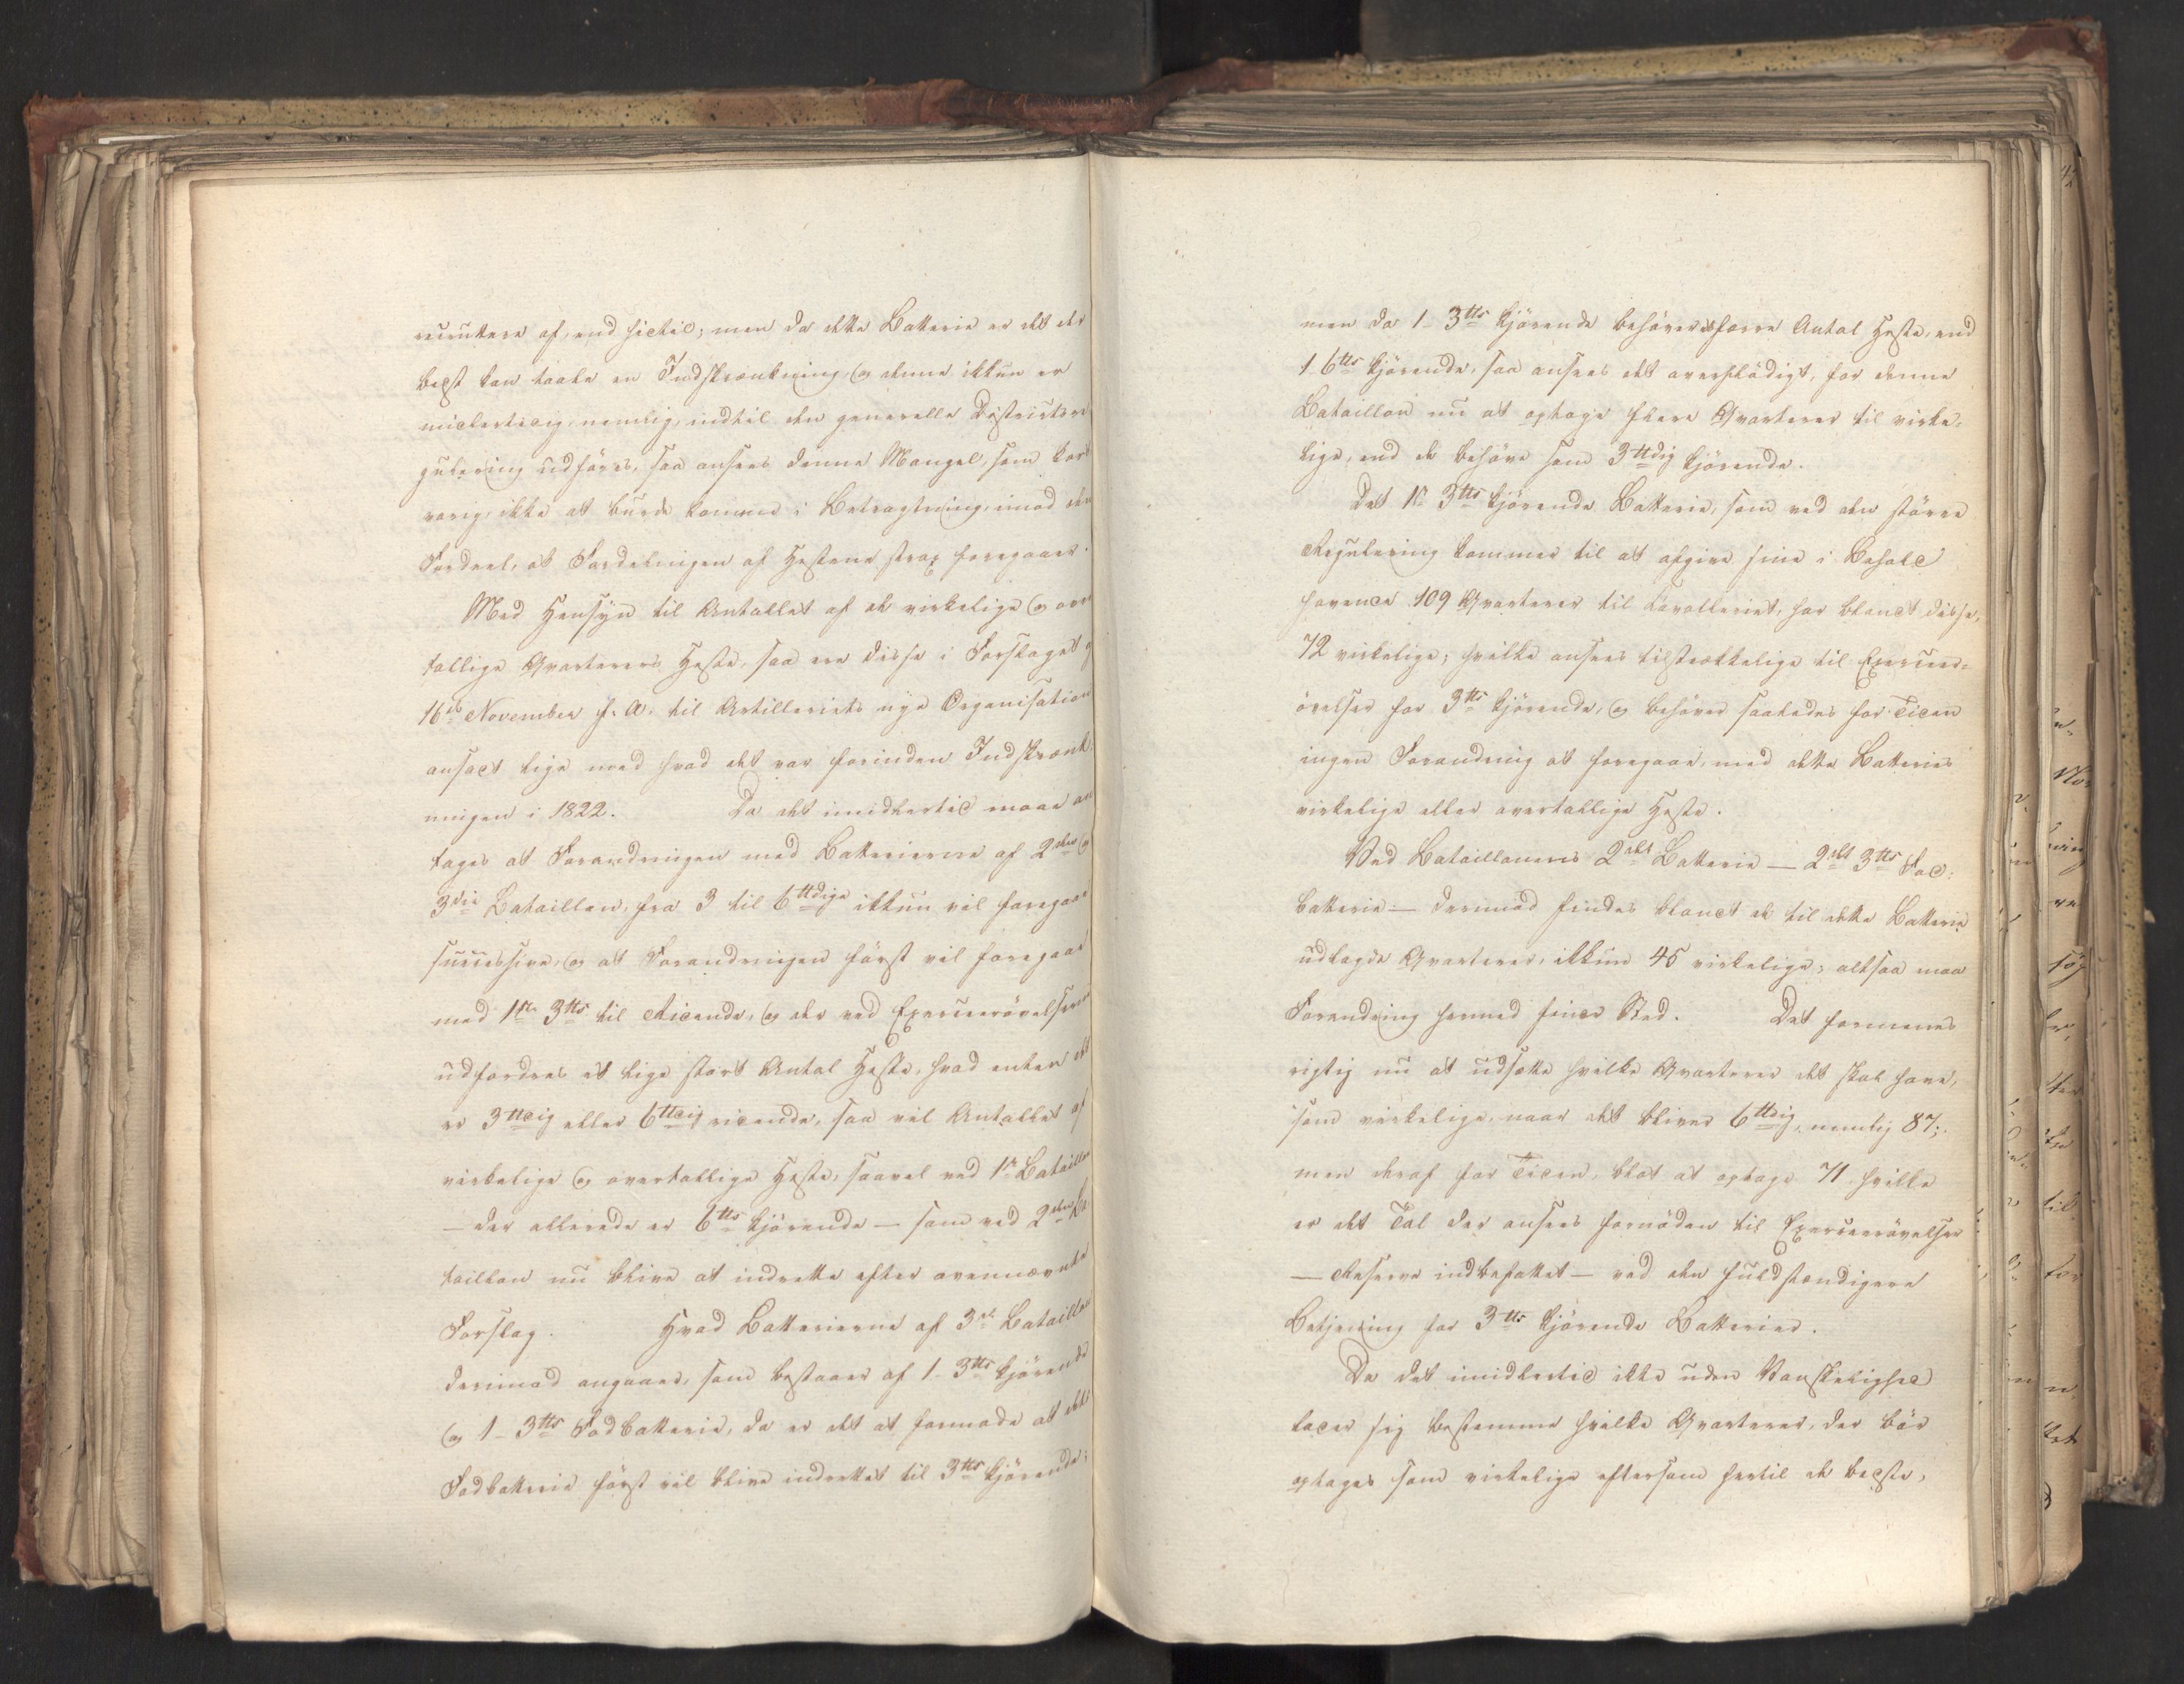 recruttere af, end hidtil; men da dette Batterie er det der
bedst kan taale en Indskrænkning, og denne ikkun er
midlertidig, nemlig, indtil den generelle Districtsre
gulering udføres, saa ansees denne Mangel, som kort
varig, ikke at burde komme i Betragtning, imod den
Fordeel, at Fordelingen af Hestene strax foregaaer.
Med Hensyn til Antallet af de virkelige og over
tallige Qvarterers Heste, saa ere disse i Forslaget
16de November f. A. til Artilleriets nye Organisation
ansat lige med hvad det var forinden Indskrænk,
ningen i 1822. Da det imidlertid maae an
tages at Forandringen med Batterierne af 2den og
3die Bataillon, fra 3 til 6ttdige ikkun vil foregaae
successive, og at Forandringen först vil foregaae
med 1ste 3tts til Ridende, og der ved Exerceerövelserne
udfordres et lige stort Antal Heste, hvad enten det
er 3ttdig eller 6ttdig ridende, saa vil Antallet af
virkelige og overtallige Heste, saavel ved 1ste Bataillon
— der allerede er 6tts kjörende — som ved 2den Ba
taillon nu blive at indrette efter ovennævnte
Forslag. Hvad Batterierne af 3die Bataillon
derimod angaaer, som bestaaer af 1- 3tts kjörende
og 1- 3tts Fodbatterie, da er det at formode at det
Fodbatterie först vil blive indrettet til 3tts kjörende;
men da 1- 3tts kjörende behöver et færre Antal Heste, end
1 6tts kjörende, saa ansees det overflödigt, for denne
Bataillon nu at optage flere Qvarterer til virke,
lige, end de behöve som 3ttdig kjörende.
Det 1ste 3tts kjörende Batterie, som ved den större
Regulering kommer til at afgive sine i Behold
havende 109 Qvarterer til Cavalleriet, har blandt disse,
72 virkelige; hvilke ansees tilstrækkelige til Exerceer=
övelser for 3tts kjörende, og behöver saaledes for Tiden
ingen Forandring at foregaae, med dette Batteries
virkelige eller overtallige Heste.
Ved Bataillonens 2det Batterie — 2det 3tts Fod:
batterie — derimod findes blandt de til dette Batterie
udlagde Qvarterer, ikkun 45 virkelige; altsaa maa
Forandring hermed finde Sted. Det formenes
rigtig nu at udsætte hvilke Qvarterer det skal have,
som virkelige, naar det bliver 6ttdig, nemlig 87;
men deraf for Tiden, blot at optage 71, hvilke
er det Tal der ansees fornöden til Exerceerövelser
— Reserve indbefattet — ved den fuldstændigere
Betjening for 3tts kjörende Batterier.
Da det imidlertid ikke uden Vanskelighed
lader sig bestemme hvilke Qvarterer, der bör
optages som virkelige eftersom hertil de bedste,